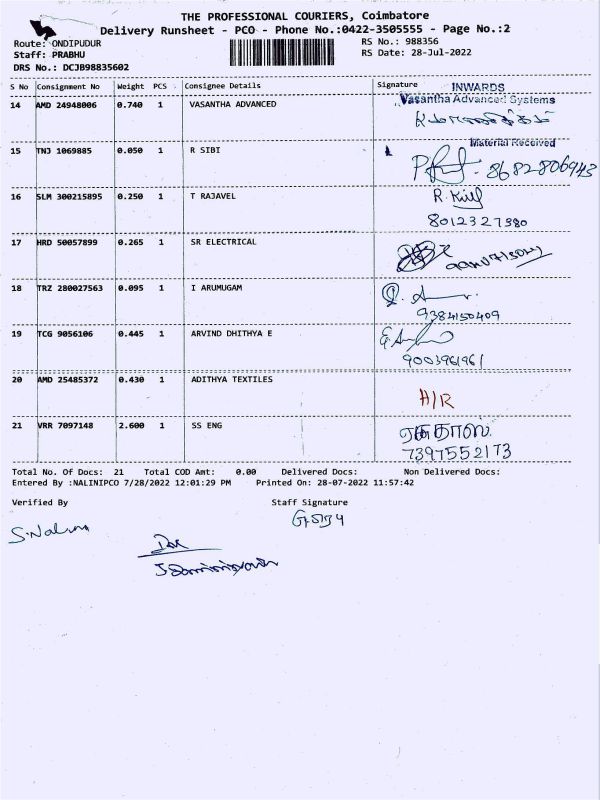 THE PROFESSIONAL COURIERS, Coimbatore
Delivery Runsheet - PCO - Phone No.:0422-3505555 - Page No.:2
Route: ONDIPUDUR RS No.: 988356
Staff: PRABHU RS Date: 28-Jul-2022
DRS No.: DCJB98835602
S No Consignment No Weight PCS Consignee Details Signature
INWARDS
Vasantha Advanced Systems
14 AMD 24948006 0.740 1 VASANTHA ADVANCED
Material Received
15 TNJ 1069885 0.050 1 R SIBI 8682806943
16 SLM 300215895 0.250 1 T RAJAVEL R.
8012327380
17 HRD 50057899 0.265 1 SR ELECTRICAL
18 TRZ 280027563 0.095 1 I ARUMUGAM
9384150409
19 TCG 9056106 0.445 1 ARVIND DHITHYA E
9003961961
20 AMD 25485372 0.430 1 ADITHYA TEXTILES H/R
21 VRR 7097148 2.600 1 SS ENG
7397552173
Total No. Of Docs: 21 Total COD Amt: 0.00 Delivered Docs: Non Delivered Docs:
Entered By :NALINIPCO 7/28/2022 12:01:29 PM Printed On: 28-07-2022 11:57:42
Verified By Staff Signature